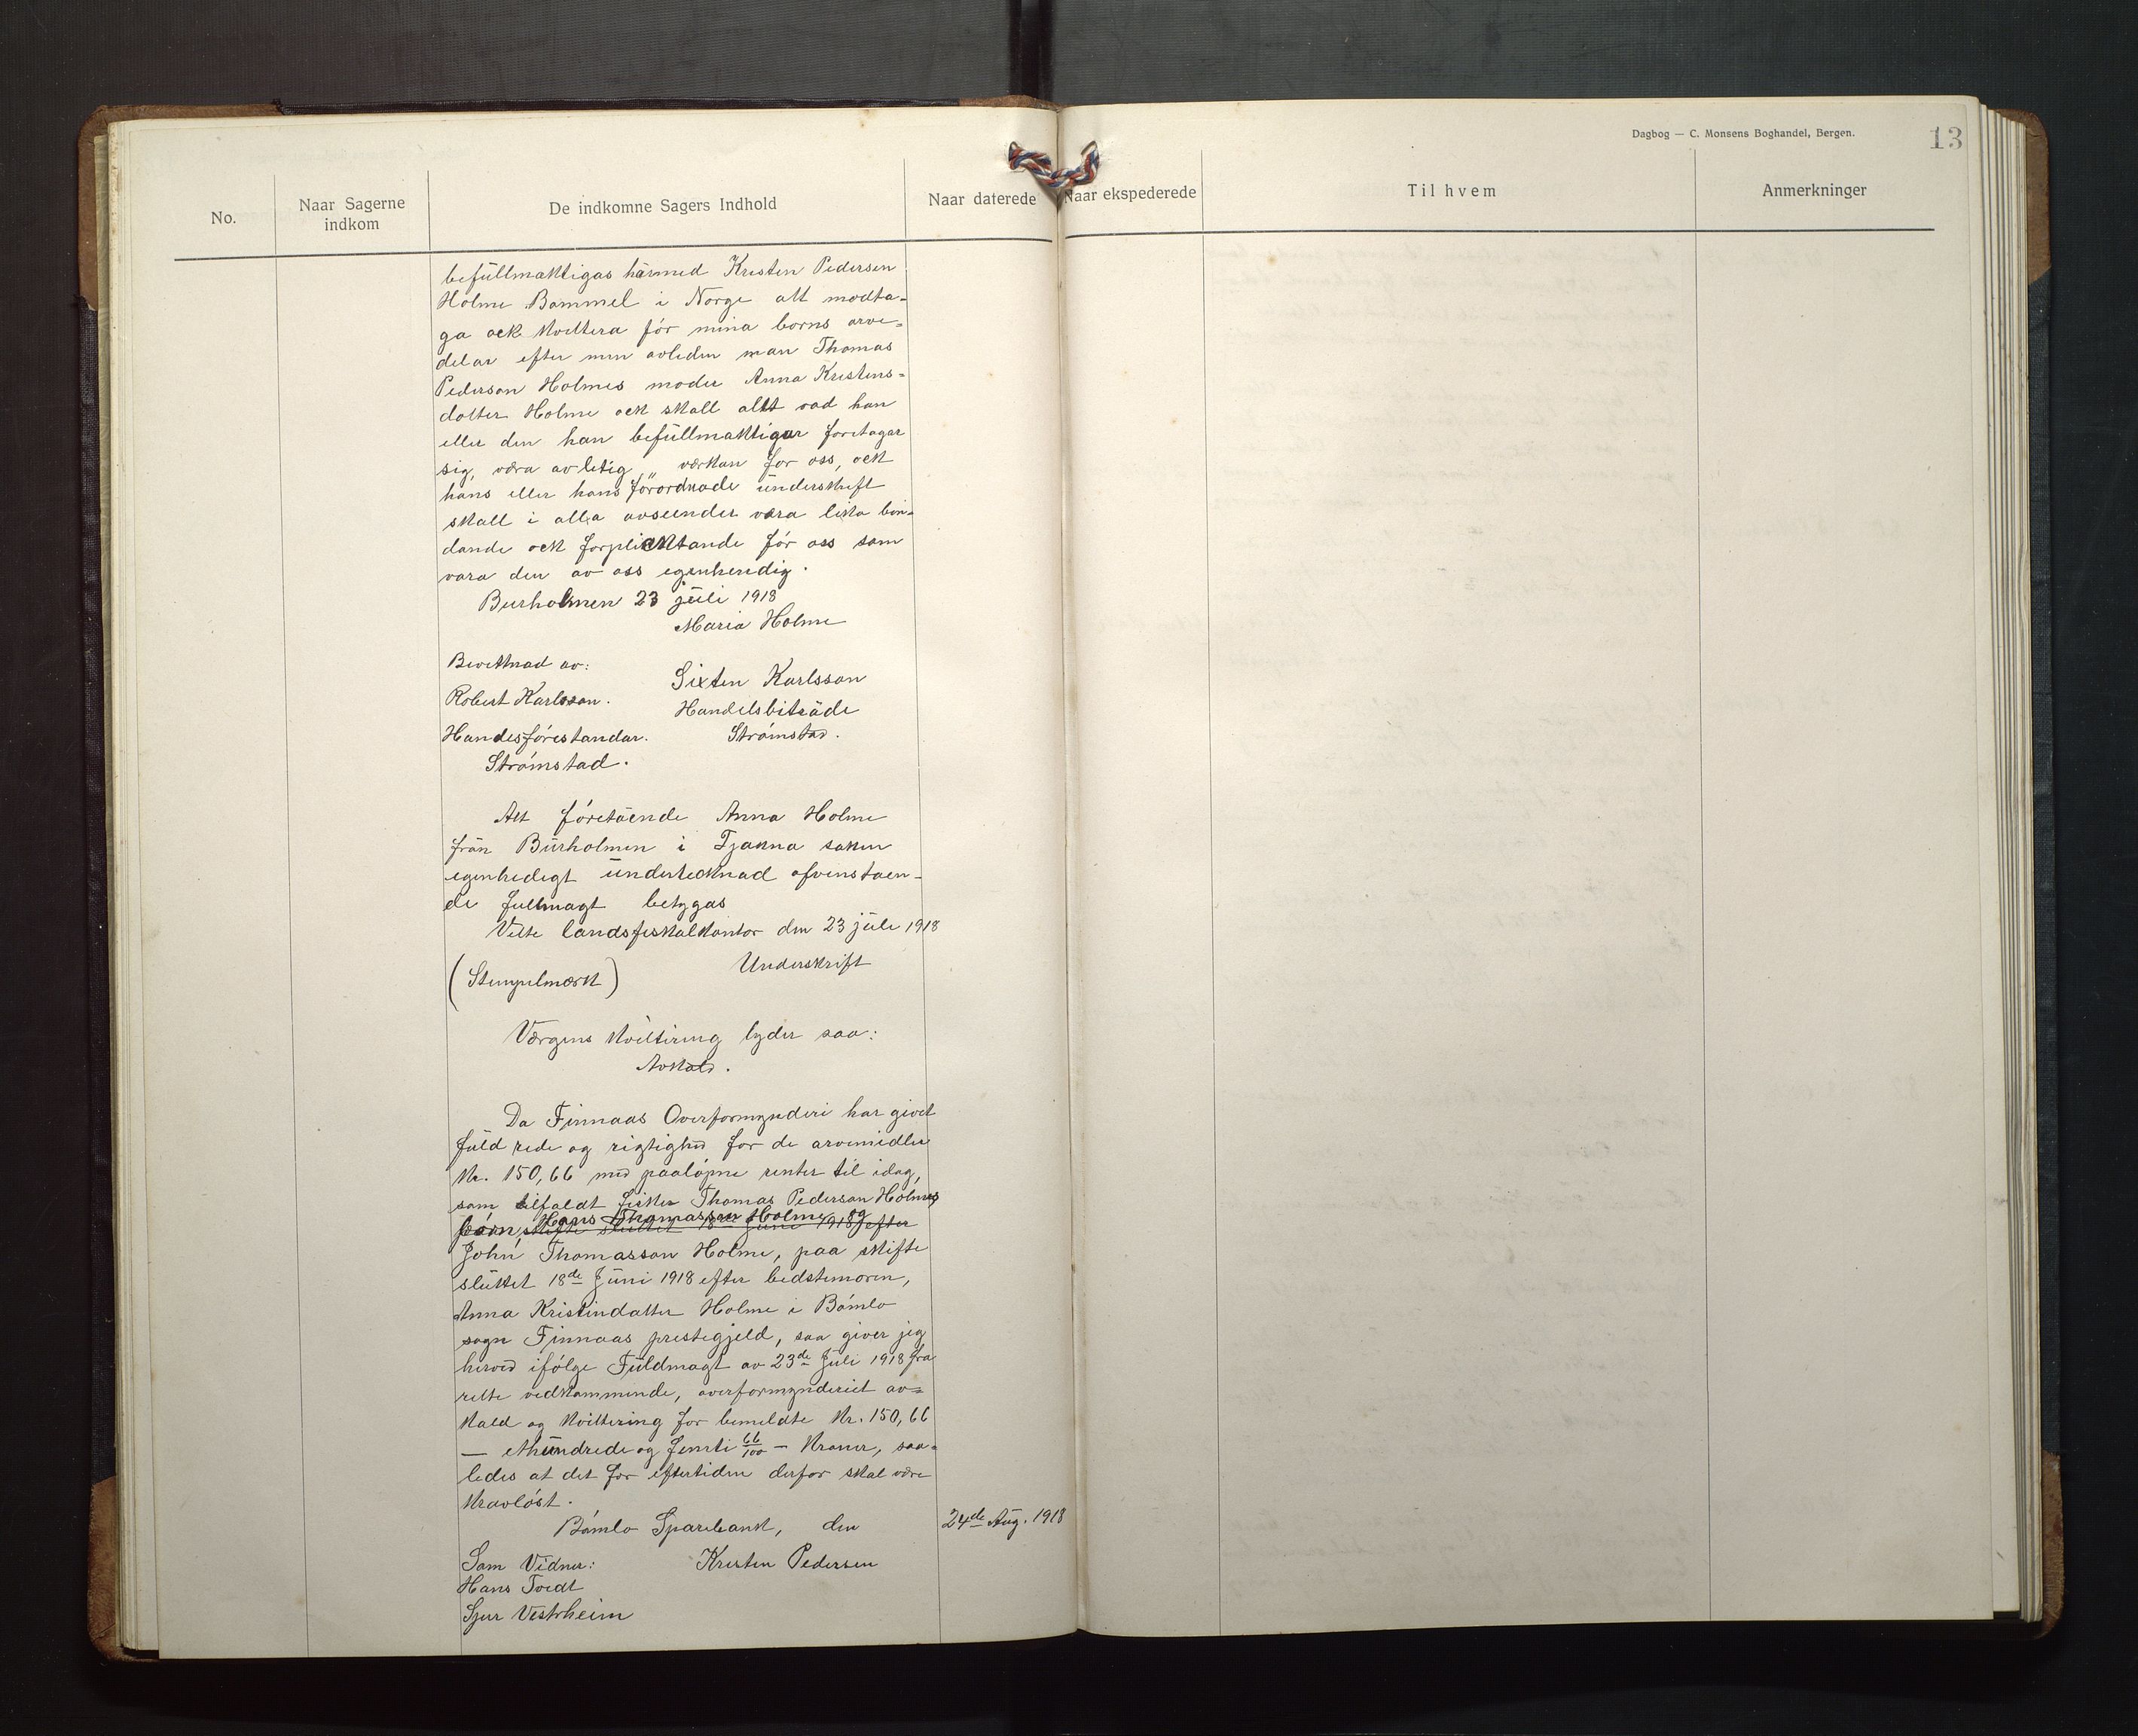 Dagbog — C. Monsens Boghandel, Bergen.
13
No.
Naar Sagerne indkom
De indkomne Sagers Indhold
Naar daterede
Naar ekspederede
Til hvem
Anmerkninger
befüllmaktigas härmed Kristen Pedersen
Holme Bammel i Norge att modta-
ga ock kvittera för mina borns arve-
delar efter min avleden man Thomas
Pederson Holmes moder Anna Kristens-
dotter Holme ock skall allt vad han
eller den han befüllmaktigar foretagar
sig, vara av letig „ verkan for oss, ock
hans eller hans förordnade ünderskrift
skall i alla avseender vara lika bin-
dande ock forplicktande för oss som
vara den av oss egenhendig.
Burholmen 23 jüli 1918
Maria Holme
Bevittnad av:
Robert Karlsson.
Handesförestandar.
Strömstad.
Sixten Karlsson
Handelsbiträde
Strömstad.
Att företäende Anna Holme
från Bürholmen i Tjakna saken
egenhedigt ündertecknad ofvenstaen-
de fullmagt betygas
Vette landsfiskalkontor den 23 jüli 1918
(Stempelmærk)
Underskrift
Værgens kvittering lyder saa:
Avkald.
Da Finnaas Overformynderi har givet
füld rede og rigtighed for de arvemidler
Kr. 150,66 med paaløpne renter til idag,
som tilfaldt fisker Thomas Pederson Holmes
børn, Hans Thomasson Holme og
skifte sluttet 18de Jüni 1918 efter
John Thomasson Holme, paa skifte
slüttet 18de Jüni 1918 efter bedstemoren,
Anna Kristindatter Holme i Bømlo
sogn Finnaas prestegjeld, saa giver jeg
herved ifølge Füldmagt av 23de Jüli 1918 fra
rette vedkommende, overformynderiet av-
kald og kvittering for bemeldte Kr. 150,66
— ethündrede og femti 66/100 — Kroner, saa-
ledes at det for eftertiden derfor skal være
kravløst.
Bømlo Sparebank, den
24de Aug. 1918
Som Vidner:
Kristen Pedersen
Hans Tvedt
Sjur Vestrheim